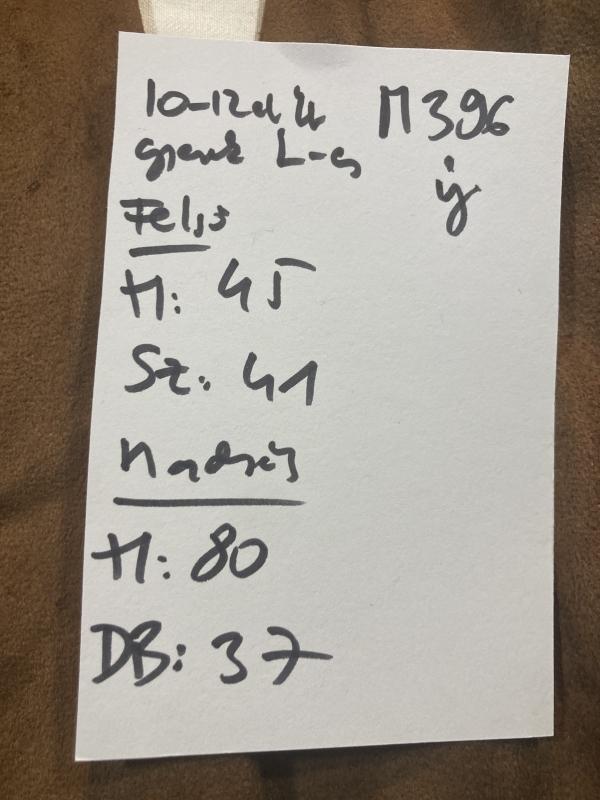 10-12 M396
L-es új
Felső
H: 45
Sz: 41
Nadrág
H: 80
DB: 37